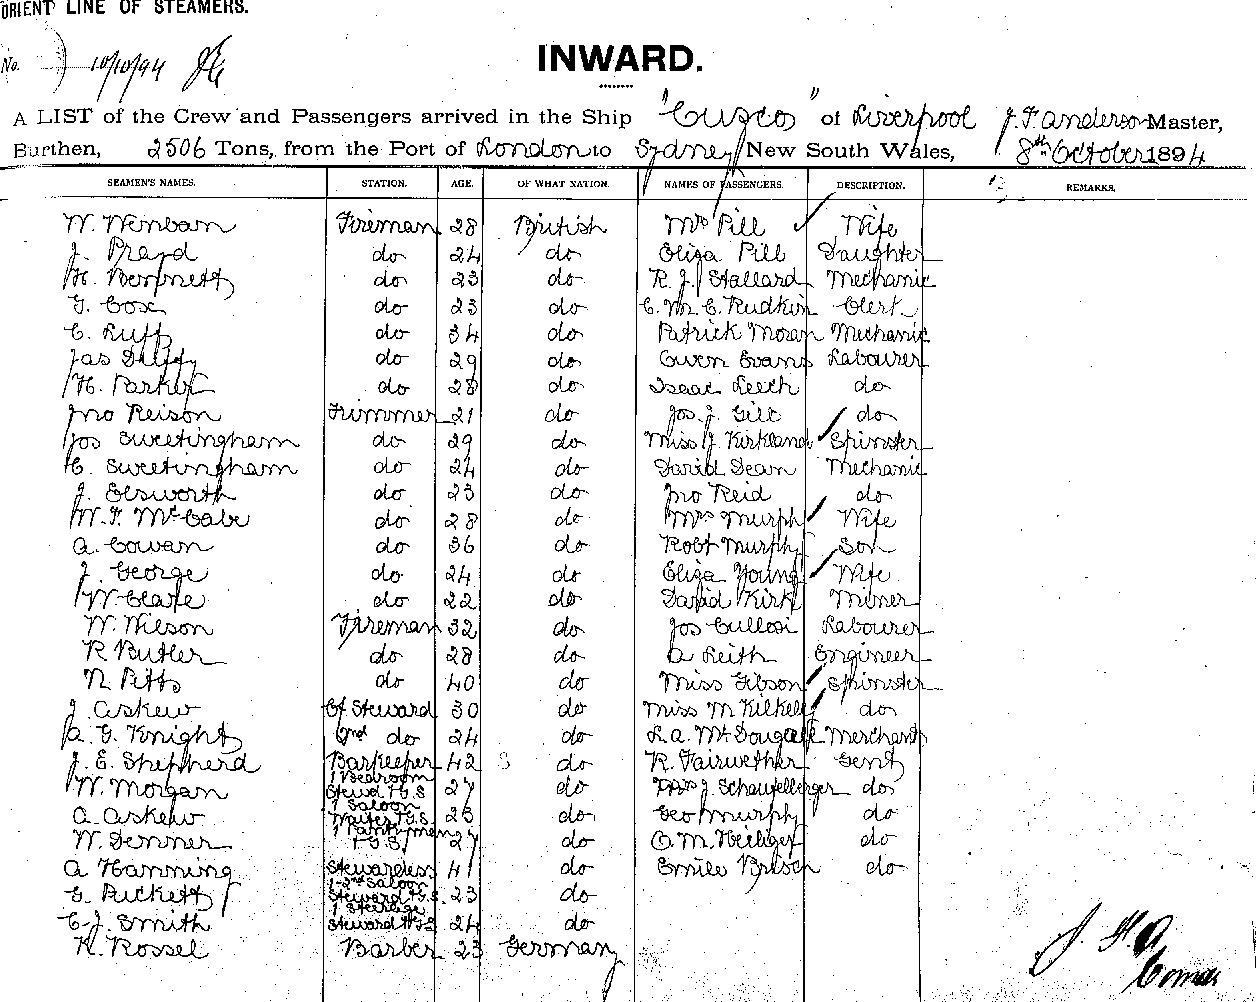 ORIENT LINE OF STEAMERS.
No. 10/10/94
INWARD.
A LIST of the Crew and Passengers arrived in the Ship "Cuzco" of Liverpool J. F. Anderson Master,
Burthen, 2506 Tons, from the Port of London to Sydney New South Wales, 8th October 1894
SEAMEN'S NAMES. STATION. AGE. OF WHAT NATION. NAMES OF PASSENGERS. DESCRIPTION. REMARKS.
W. Wenban Fireman 28 British Mrs Pill Wife
J. Prayd do 24 do Eliza Pill Daughter
H. Bennett do 23 do R. J. Stallard Mechanic
G. Cox do 23 do C. M. C. Rudkin Clerk
C. Ruff do 34 do Patrick Moran Mechanic
Jas do 29 do Owen Evans Labourer
H. Parker do 28 do Isaac Leech do
Jno Reison Trimmer 21 do Jos. J. Gill do
Jos Sweetingham do 29 do Miss J. Kirkland Spinster
C. Sweetingham do 24 do David Dean Mechanic
J. Elsworth do 23 do Jno Reid do
W. F. McCabe do 28 do Mrs Murphy Wife
A. Cowan do 36 do Robt Murphy Son
J. George do 24 do Eliza Young Wife
W. Clare do 22 do David Kirk Miner
W. Wilson Fireman 32 do Jos Labourer
R Butler do 28 do A Leith Engineer
N. Pitts do 40 do Miss Gibson Spinster
J. Askew Cf Steward 30 do Miss M Kilkelly do
A. G. Knight 2nd do 24 do L. A. McDougall Merchant
J. E. Shepherd Barkeeper 42 do R. Fairwether Gent
W. Morgan 1 Bedroom Stewd F.G.S 27 do J. Schaufelberger do
A. Askew 1 Saloon Waiter F.G.S. 23 do Geo Murphy do
W. Denner 1 Pantryman F.G.S. 27 do O. M. Heiliger do
A Hamming Stewardess 41 do Emile do
G. Puckett 1-2nd Saloon Steward F.G.S. 23 do
C. J. Smith 1 Steerage Steward F.G.S 24 do
K. Rossel Barber 23 Germany
J. F. A.
Comdr